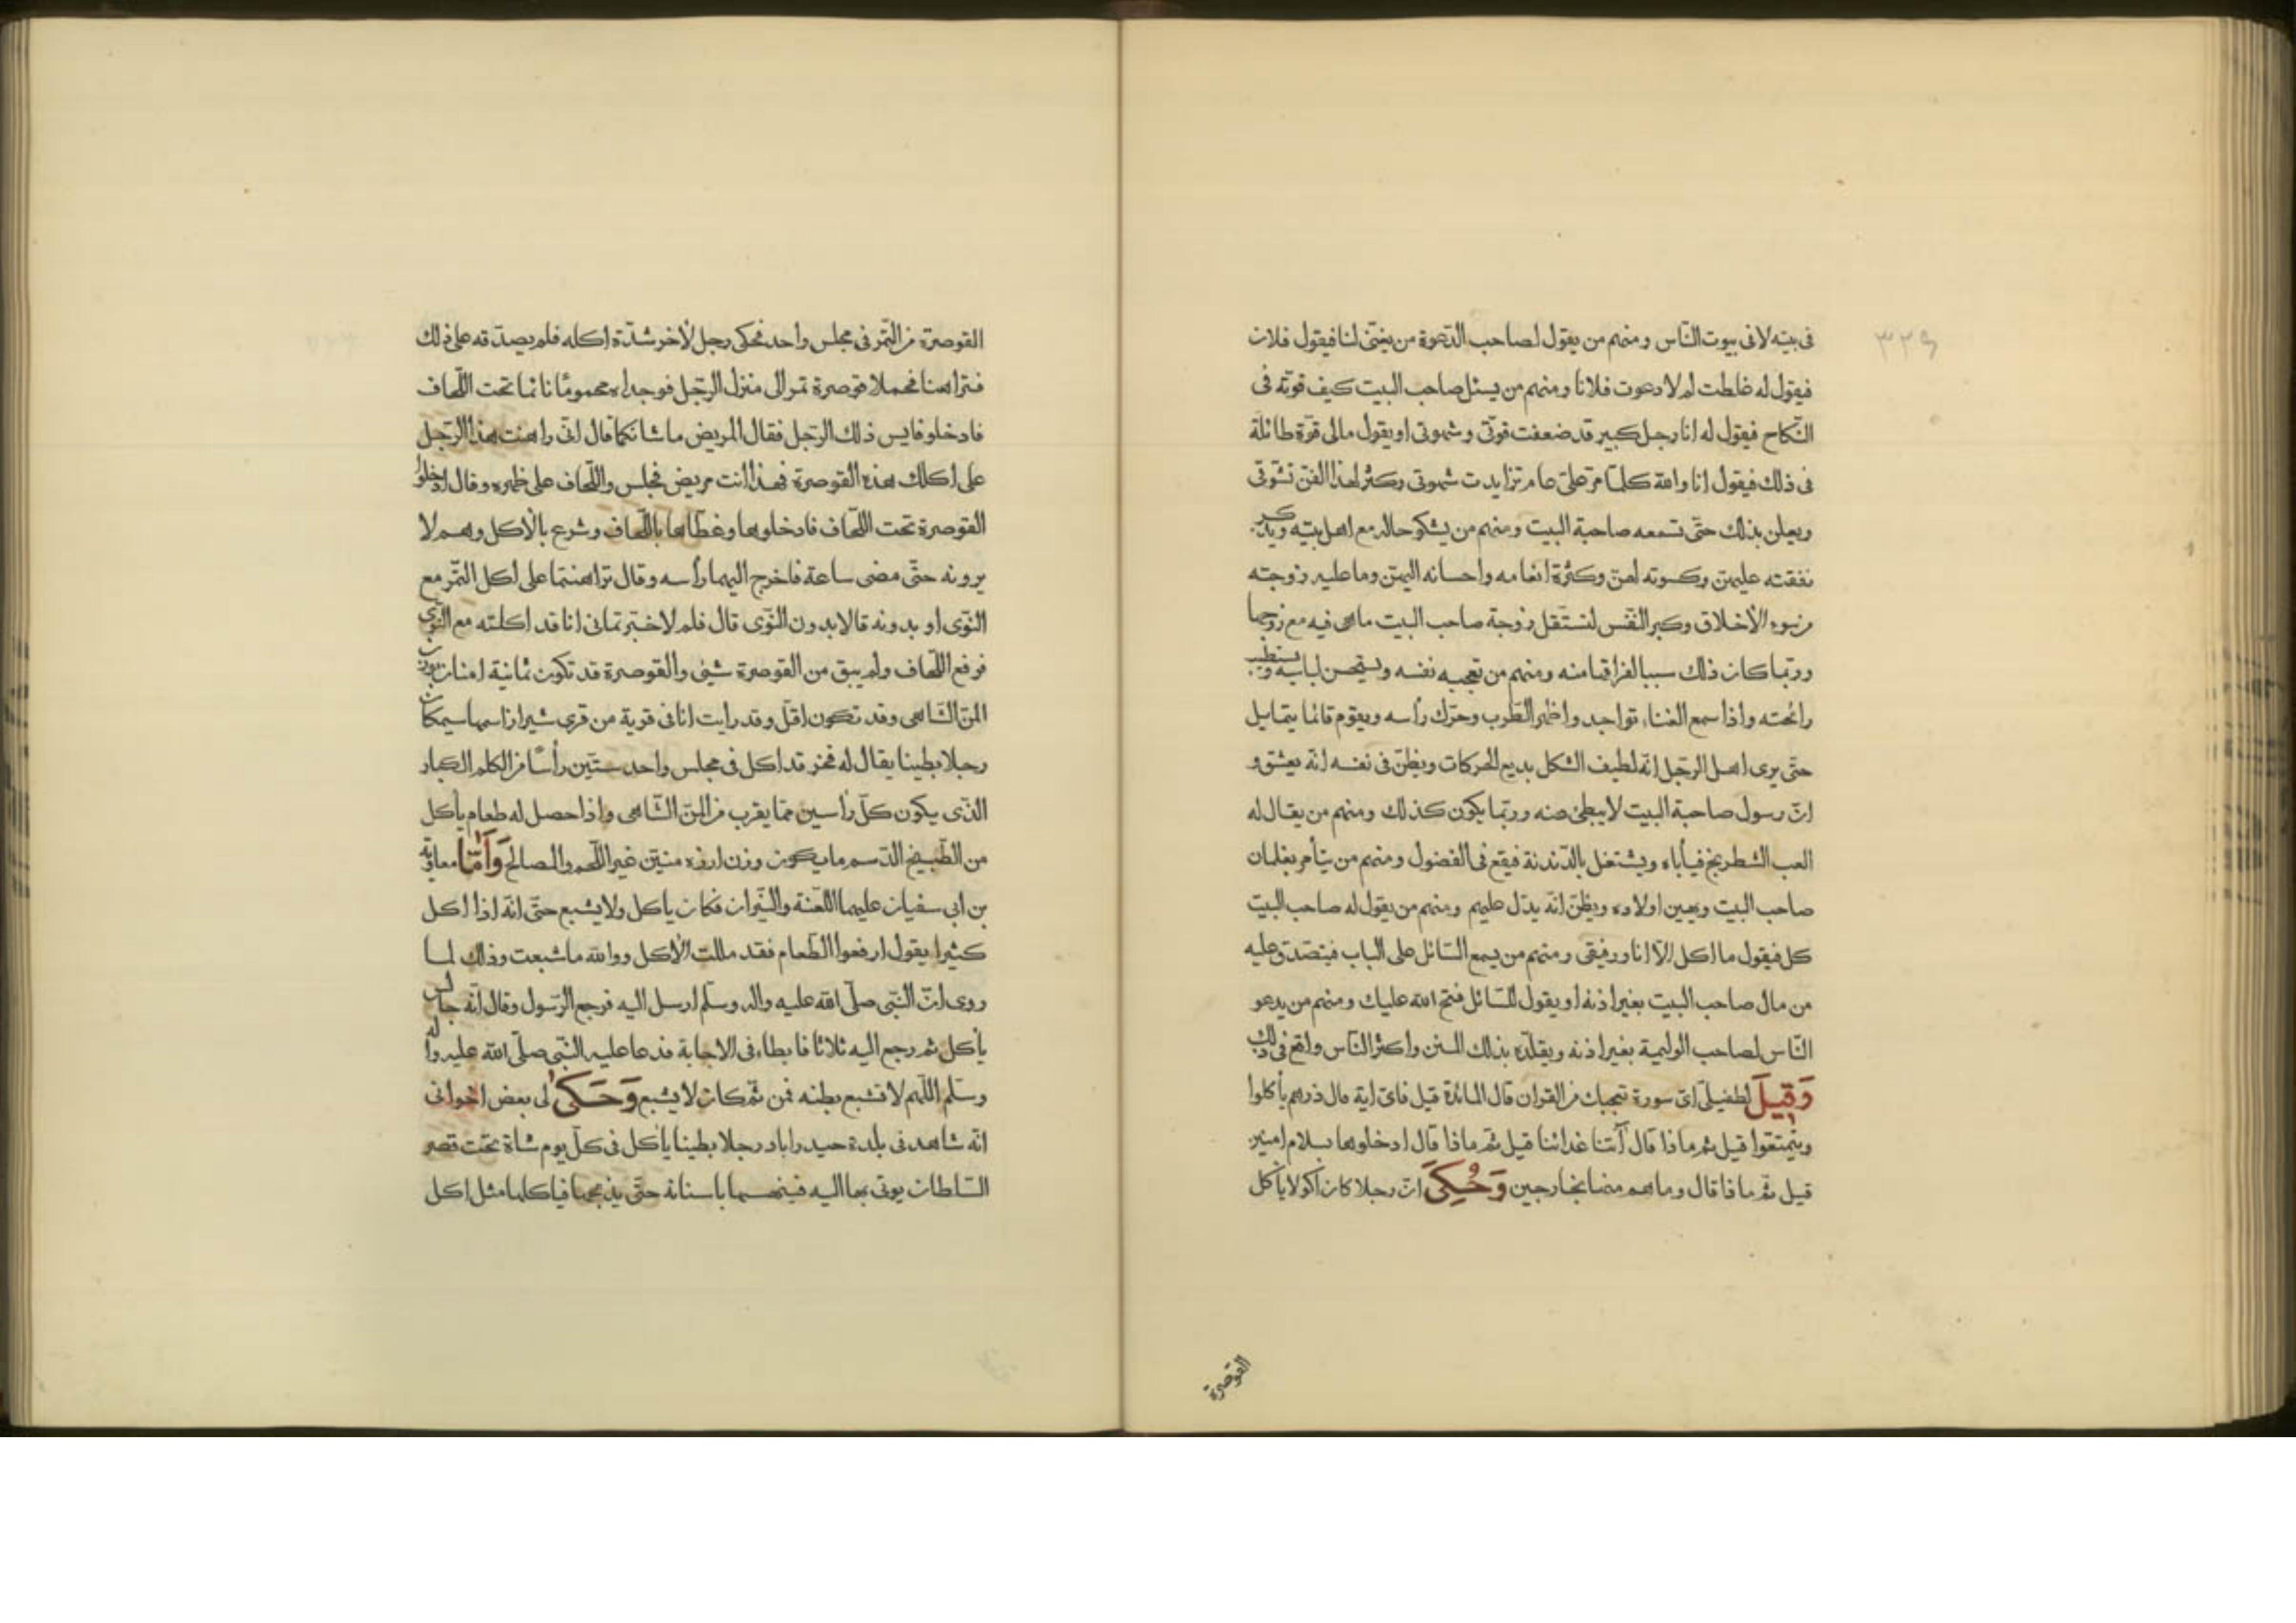 ٣٢٩
فى بيته لا فى بيوت النّاس ومنهم من يقول لصاحب الدّعوة من يغنّى لنا فيقول فلان
فيقول له غلطت لم لا دعوت فلانا ومنهم من يسئل صاحب البيت كيف قوّته فى
النّكاح فيقول له انا رجل كبير قد ضعفت قوّتى وشهوتى او يقول مالى قوّة طائلة
فى ذلك فيقول انا والله كلّما مرّ علىّ عام تزايدت شهوتى وكثر لهذا الفنّ تشوّقى
ويعلن بذلك حتّى تسمعه صاحبة البيت ومنهم من يشكو حاله مع اهل بيته ويذكر
نفقته عليهنّ وكسوته لهنّ وكثرة انعامه واحسانه اليهنّ وما عليه زوجته
من سوء الأخلاق وكبر النّفس لتستقل زوجة صاحب البيت ما هى فيه مع زوجها
وربّما كان ذلك سببا لفراقها منه ومنهم من تعجبه نفسه ويستحسن لباسه ويستطيب
رائحته واذا سمع الغناء تواجد واظهر الطّرب وحرّك رأسه ويقوم قائما يتمايل
حتّى يرى اهل الرّجل انّه لطيف الشكل بديع الحركات ويظنّ فى نفسه انّه يعشق و
انّ رسول صاحبة البيت لا يبطئ عنه وربّما يكون كذلك ومنهم من يقال له
العب الشطرنج فيأباه ويشتغل بالدّندنة فيقع فى الفضول ومنهم من يتأمر بغلمان
صاحب البيت ويهين اولاده ويظنّ انّه يدّل عليهم ومنهم من يقول له صاحب البيت
كل فيقول ما اكل الّا انا ورفيقى ومنهم من يسمع السّائل على الباب فيتصدّق عليه
من مال صاحب البيت بغير اذنه او يقول للسّائل فتح الله عليك ومنهم من يدعو
النّاس لصاحب الوليمة بغير اذنه ويقلّده بذلك المنن واكثر النّاس واقع فى ذلك
وَقِيلَ لطفيلىّ اىّ سورة تعجبك من القران قال المائدة قيل فاىّ اية قال ذرهم يأكلوا
ويتمتّعوا قيل ثم ماذا قال آتنا غدائنا قيل ثمّ ماذا قال ادخلوها بسلام امنين
قيل ثمّ ماذا قال وما هم منها بخارجين وَحُكِىَ انّ رجلا كان اكولا يأكل
القوصرة
القوصرة من التّمر فى مجلس واحد فحكى رجل لأخر شدّة اكله فلم يصدّقه على ذلك
فتراهنا فحملا قوصرة تمر الى منزل الرّجل فوجداه محموما نائما تحت اللّحاف
فادخلوا ذلك الرّجل فقال المريض ما شأنكما قال انّى راهنت هذا الرّجل
على اكلك هذه القوصرة فهذا انت مريض فجلس واللّحاف على ظهره وقال ادخلوا
القوصرة تحت اللّحاف فادخلوها وغطّاها باللّحاف وشرع بالأكل وهم لا
يرونه حتّى مضى ساعة فاخرج اليهما رأسه وقال تراهنتما على اكل التّمر مع
النّوى او بدونه قالا بدون النّوى قال فلم لا خبّرتمانى انا قد اكلته مع النّوى
فرفع اللّحاف ولم يبق من القوصرة شيئ والقوصرة قد تكون ثمانية امنان بوزن
المنّ الشّاهى وقد تكون اقلّ وقد رايت انا فى قرية من قرى شيراز اسمها سيمكان
رجلا بطينا يقال له فخر قد اكل فى مجلس واحد ستّين رأسًا من الكلم الكبار
الّذى يكون كلّ رأسين ممّا يقرب من المنّ الشّاهى واذا حصل له طعام يأكل
من الطّبيخ الدّسم ما يكون وزن ارزه منيّن غير اللّحم والمصالح وَأَمّا معاوية
بن ابى سفيان عليهما اللّعنة والنّيران فكان يأكل ولا يشبع حتّى انّه اذا اكل
كثيرا يقول ارفعوا الطّعام فقد مللت الأكل ووالله ما شبعت وذلك لما
روى انّ النّبى صلّى الله عليه واله وسلّم ارسل اليه فرجع الرّسول وقال انّه جالس
يأكل ثم رجع اليه ثلاثا فابطاء فى الاجابة فدعا عليه النّبى صلّى الله عليه واله
وسلّم اللّهم لا تشبع بطنه فمن ثمّ كان لا يشبع وَحَكىٰ لى بعض اخوانى
انّه شاهد فى بلدة حيدراباد رجلا بطينا يأكل فى كلّ يوم شاة تحت قصر
السّلطان يوتى بها اليه فينهسها باسنانه حتّى يذبحها فياكلها مثل اكل